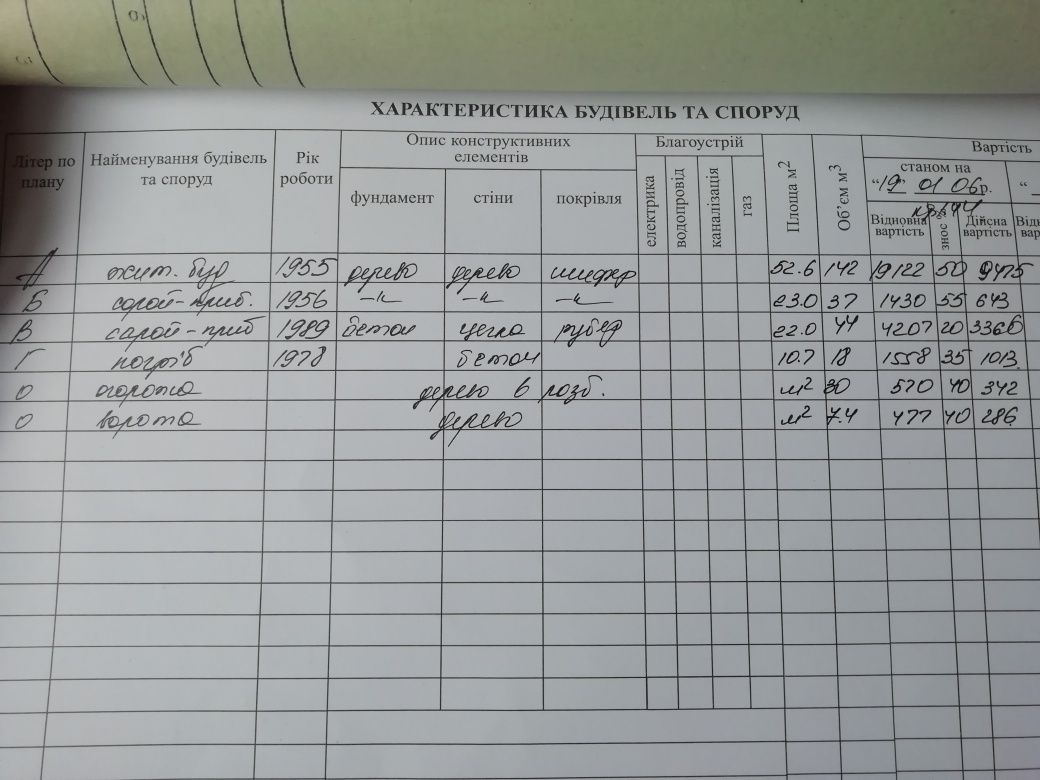 ХАРАКТЕРИСТИКА БУДІВЕЛЬ ТА СПОРУД
Літер по плану Найменування будівель та споруд Рік роботи Опис конструктивних елементів Благоустрій Площа м2 Об'єм м3 Вартість
фундамент стіни покрівля електрика водопровід каналізація газ станом на "19" 01 06р. "
Відновна вартість знос % Дійсна вартість
А жит. буд 1955 дерево дерево шифер 52.6 142 19122 50 9475
Б сарай-приб. 1956 -"- -"- -"- 23.0 37 1430 55 643
В сарай-приб 1989 бетон цегла рубер 22.0 44 4207 20 3366
Г погріб 1978 бетон 10.7 18 1558 35 1013
О огорожа дерево в розб. м2 30 570 40 342
О ворота дерево м2 7.4 477 40 286